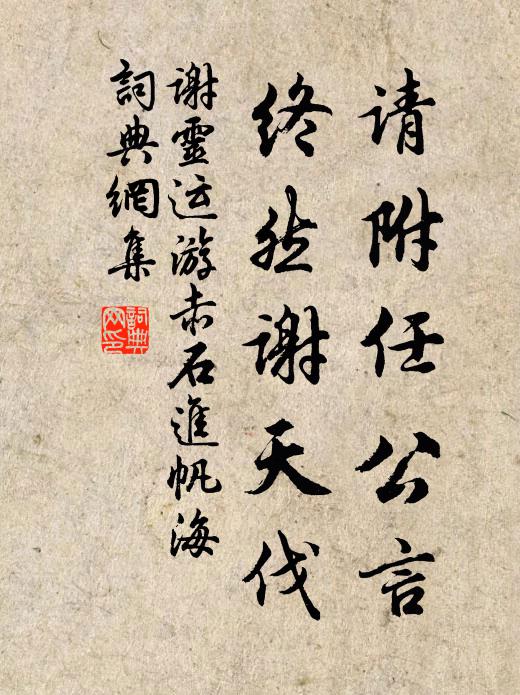 请附任公言
终然谢天伐
谢靈运游赤石進帆海
詞典網集
詞典
网印